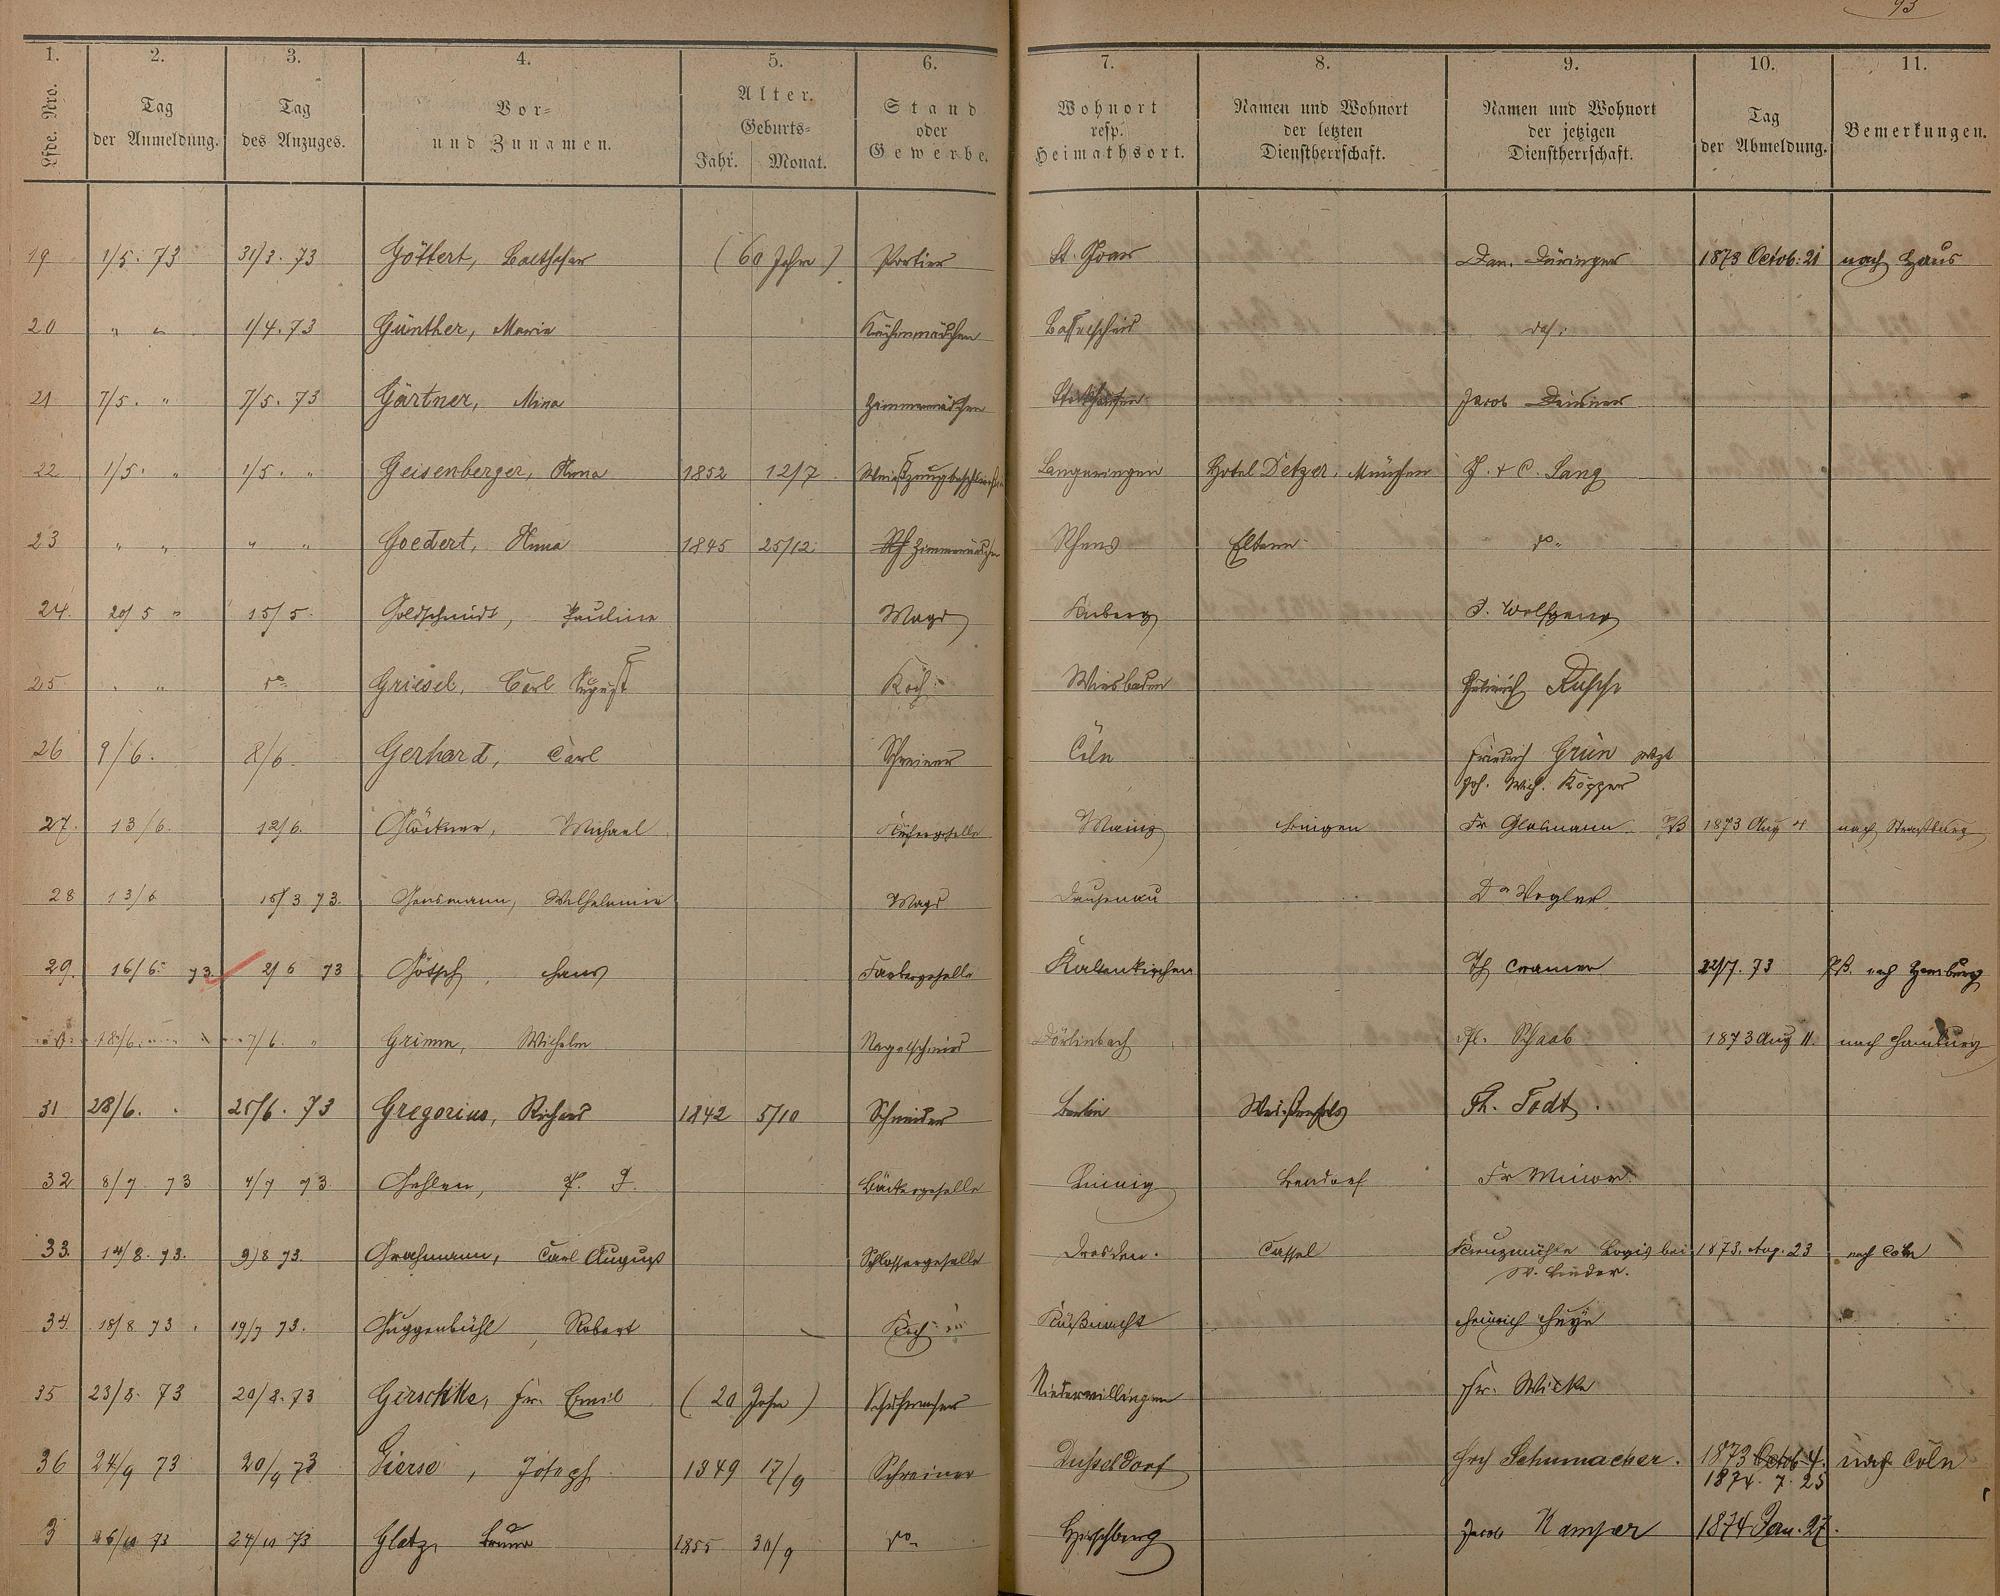 93
1. 2. 3. 4. 5. 6. 7. 8. 9. 10. 11.
Lfde. Nro. Tag der Anmeldung. Tag des Anzuges. Vor- und Zunamen. Alter. Geburts- Jahr. Monat. Stand oder Gewerbe. Wohnort resp. Heimathsort. Namen und Wohnort der letzten Dienstherrschaft. Namen und Wohnort der jetzigen Dienstherrschaft. Tag der Abmeldung. Bemerkungen.
19 1/5. 73 31/3. 73 Göttert, Balthasar (60 Jahre) Portier St. Goar Dan. Düringer 1873 Octob: 21 nach Haus
20 " " 1/4. 73 Günther, Marie Küchenmädchen Bassenheid das:
21 7/5. " 7/5. 73 Gärtner, Mina Zimmermädchen Jacob
22 1/5. " 1/5. " Geisenberger, Anna 1852 12/7 Weißzeugbeschließerin Langeringen Hotel Detzer, München G. & C. Lang
23 " " " " Goedert, Anna 1845 25/12 Zimmermädchen Rhens Eltern do.
24. 20/5 " 15/5. Goldschmidt, Pauline Magd J. Wolfgang
25 " " do. Griesel, Carl August Koch Wiesbaden Heinrich
26 9/6. 8/6. Gerhard, Carl Schreiner Cöln Friedrich Grün jetzt
Joh. Wilh. Köpper
27. 13/6. 12/6. Glöckner, Michael Mainz Bingen Fr Glasmann 1873 Aug 4 nach Strassburg
28 13/6 15/3 73. Gensmann, Wilhelmine Magd Dausenau Dr Vogler
29. 16/6. 73. 2/6 73 Götsch, Hans Farbergeselle Kaltenkirchen Th Cramer 22/7. 73 nach Hamburg
18/6. 7/6. " Grimm, Wilhelm Nagelschmied Dörlinbach Schaab 1873 Aug 11. nach Hamburg
31 28/6. " 25/6. 73 Gregorius, Richard 1842 5/10 Schneider Berlin Weißenfels Th. Todt.
32 8/7 73 4/7 73. Gehlen, P. J. Bäckergeselle Bendorf Fr Minor
33. 14/8. 73. 9/8 73. Grahmann, Carl August Schlossergeselle Dresden. Cassel Kreuzmühle Logis bei 1873. Aug. 23 nach Cöln
W. Linder.
34. 18/8 73. 19/7 73. Guggenbühl, Robert Koch Küßnacht Heinrich Heye
35 23/8. 73 20/8. 73 Girschkke, Fr. Emil (20 Jahre) Schuhmacher Niederwillingen Fr. Wicke
36 24/9 73 20/9 73 Gierse, Joseph 1849 17/9 Schreiner Düsseldorf Hch Schumacher. 1873 Octob 4. nach Cöln
1874. 7. 25
3 26/10 73 24/10 73 Glatz, Bruno 1855 30/9 do. Hirschberg Jacob Kamper 1874 Jan. 27.